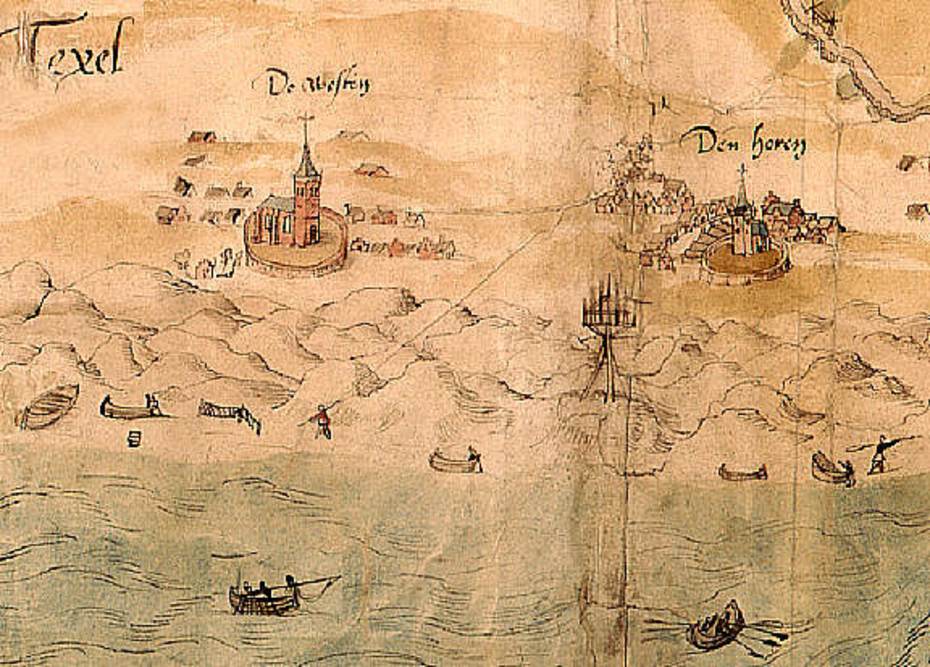 Texel
De westen
Den horen